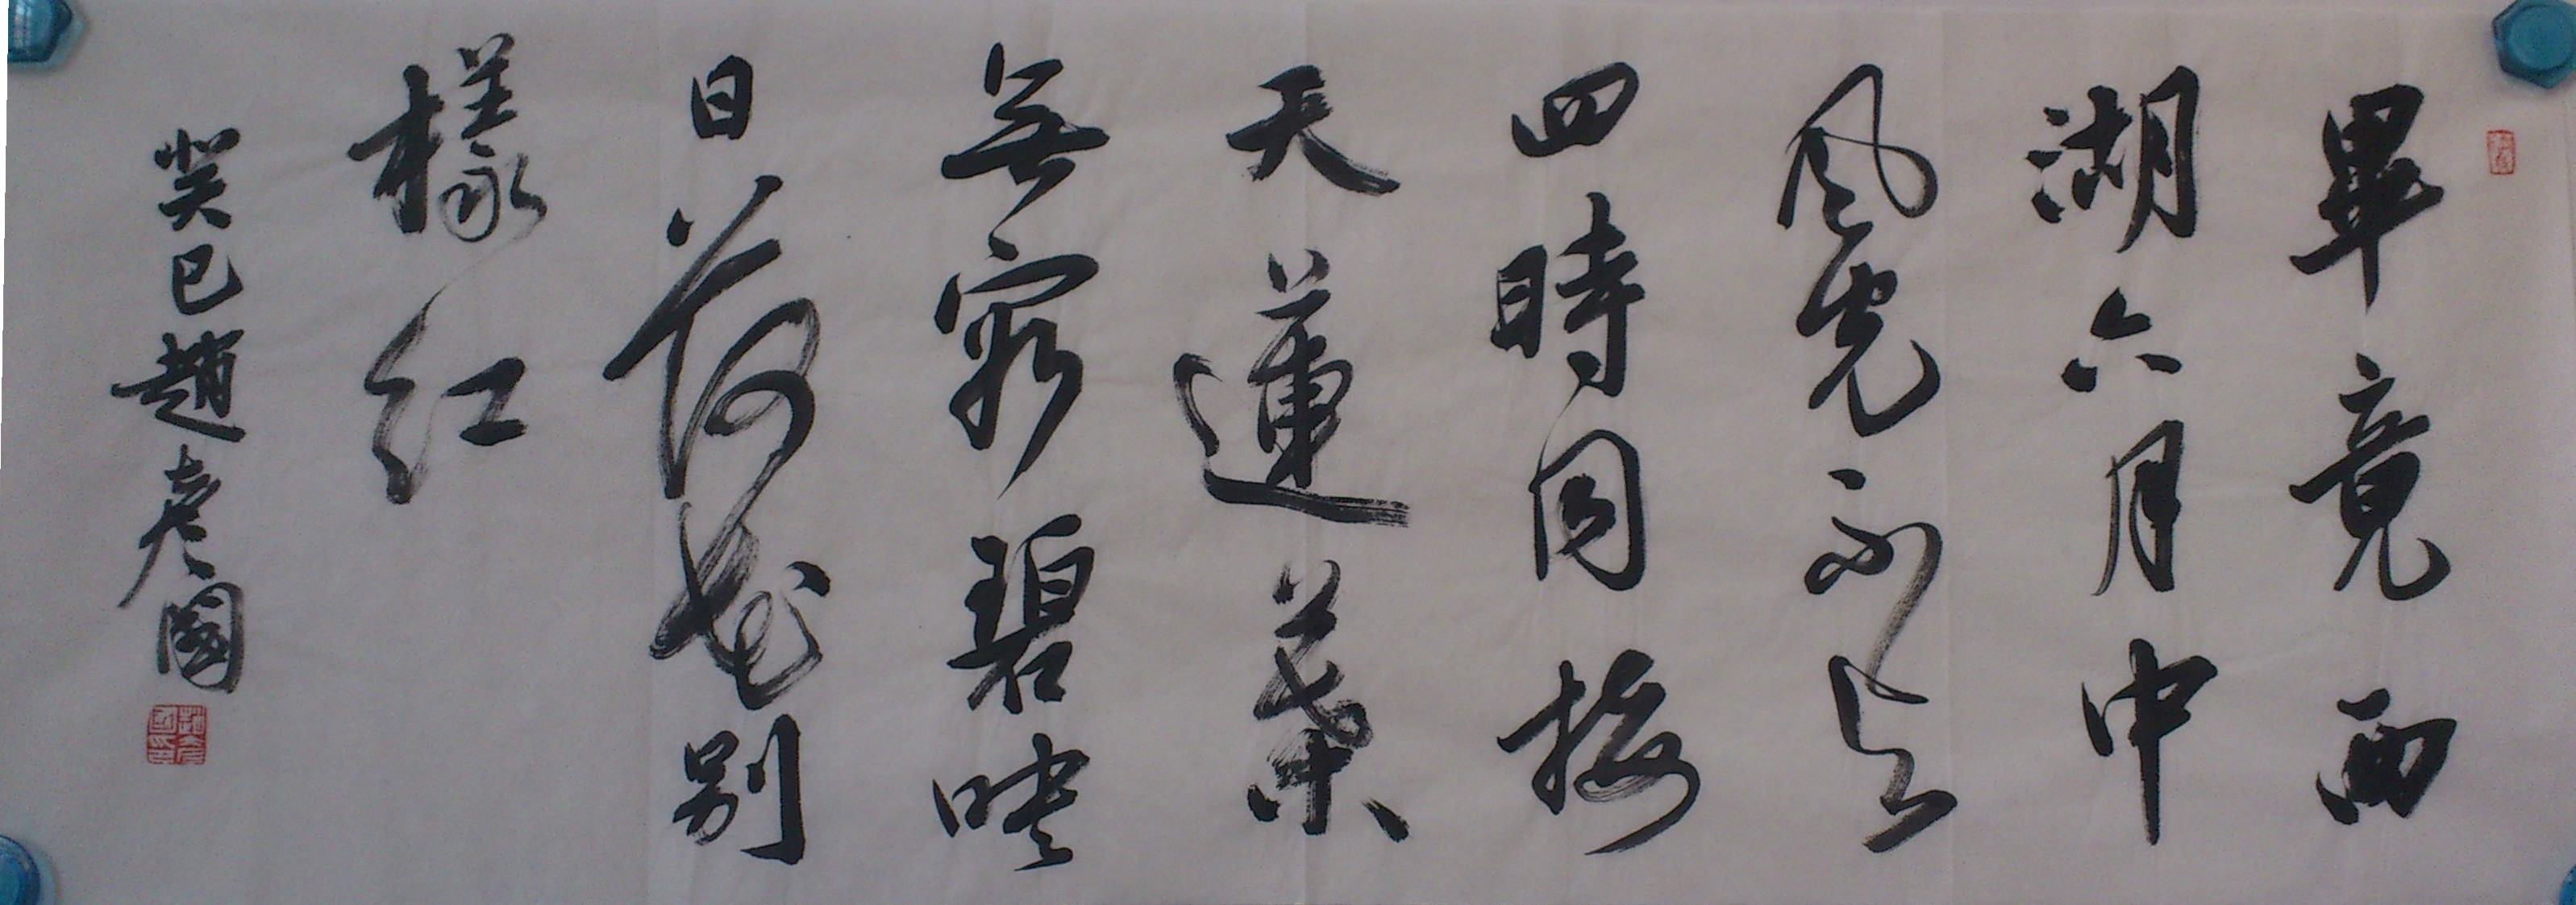 畢竟西
湖六月中
風光不與
四時同接
天蓮葉
無窮碧映
日荷花別
樣紅
癸巳趙彥國